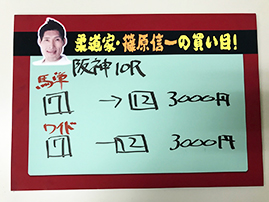 柔道家・篠原信一の買い目!
阪神10R
馬単
7 → 12 3000円
ワイド
7 — 12 3000円